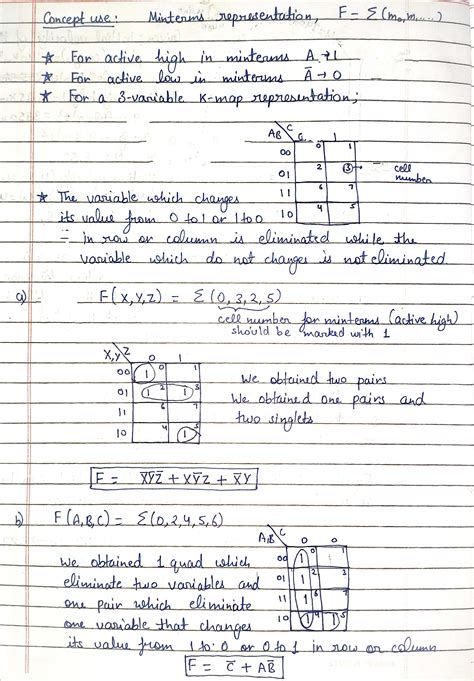 Concept use: Minterms representation, F = Σ(m₀,m.....)
* For active high in minterms A → 1
* For active low in minterms Ā → 0
* For a 3-variable K-map representation;
AB C 0 1
00 0 1
01 2 3 → cell number
11 6 7
10 4 5
* The variable which changes
its value from 0 to 1 or 1 to 0
in row or column is eliminated while the
variable which do not changes is not eliminated
a) F(X,Y,Z) = Σ(0,3,2,5)
cell number for minterms (active high)
should be marked with 1
X,Y Z 0 1
00 1 0 1
01 1 2 1 3
11 6 7
10 4 1 5
We obtained two pairs
We obtained one pairs and
two singlets
F = X̅Y̅Z̅ + XY̅Z + X̅Y
b) F(A,B,C) = Σ(0,2,4,5,6)
A,B C 0 0
00 1 0 1
01 1 2 3
11 1 6 7
10 1 4 1 5
We obtained 1 quad which
eliminate two variables and
one pair which eliminate
one variable that changes
its value from 1 to 0 or 0 to 1 in row or column
F = C̅ + AB̅